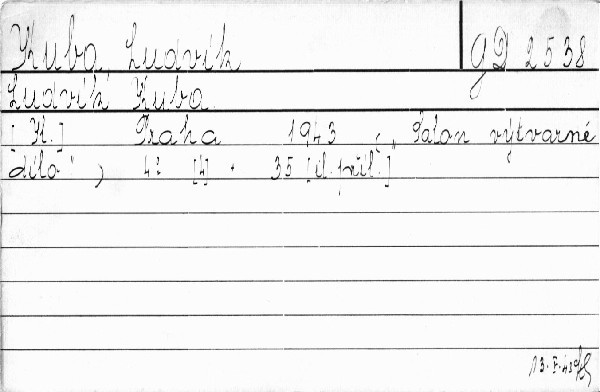 Kuba, Ludvík GD 2538
Ludvík Kuba.
[It.] Praha 1943 („Salon výtvarné
dílo“), 4° [4] . 35 [il. příl.]